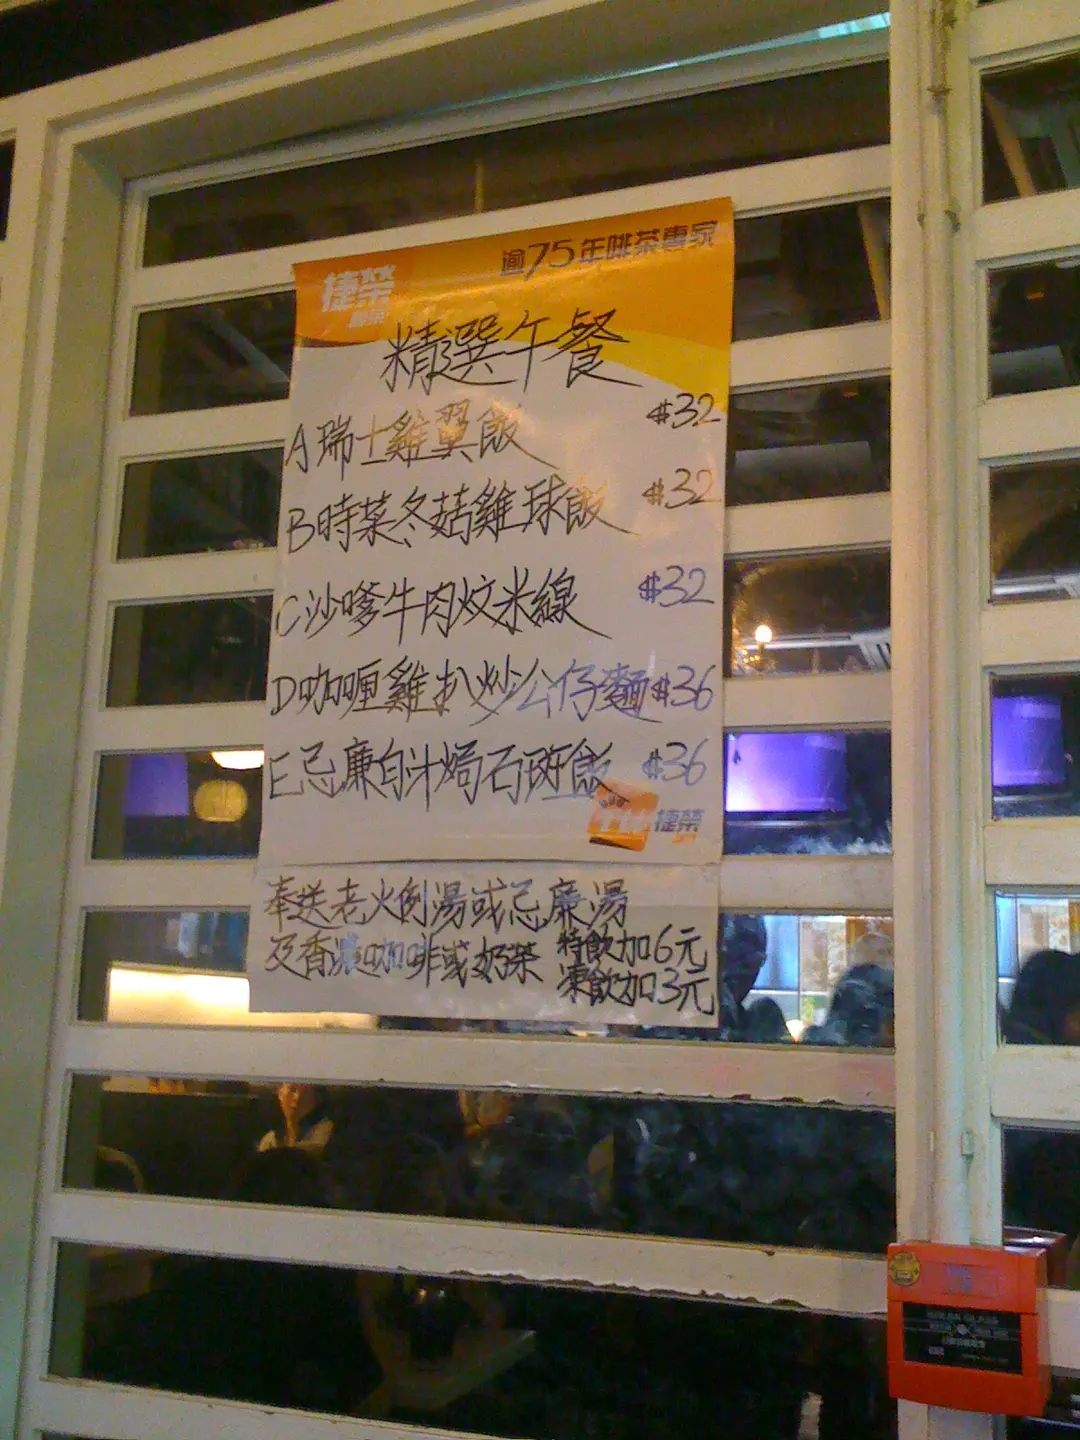 捷榮
逾75年啡茶專家
精選午餐
A瑞士雞翼飯 $32
B時菜冬菇雞球飯 $32
C沙嗲牛肉炆米線 $32
D咖喱雞扒炒公仔麵 $36
E忌廉白汁焗石斑飯 $36
捷榮
奉送老火例湯或忌廉湯
及香濃咖啡或奶茶 特飲加6元
凍飲加3元